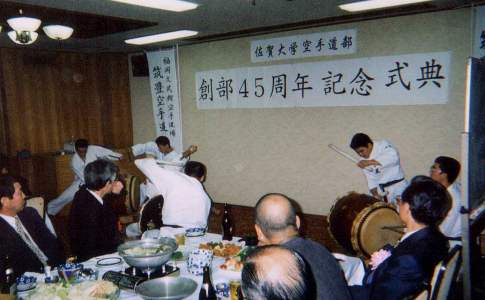 佐賀大学空手道部
創部45周年 記念 式典
筑豊空手道